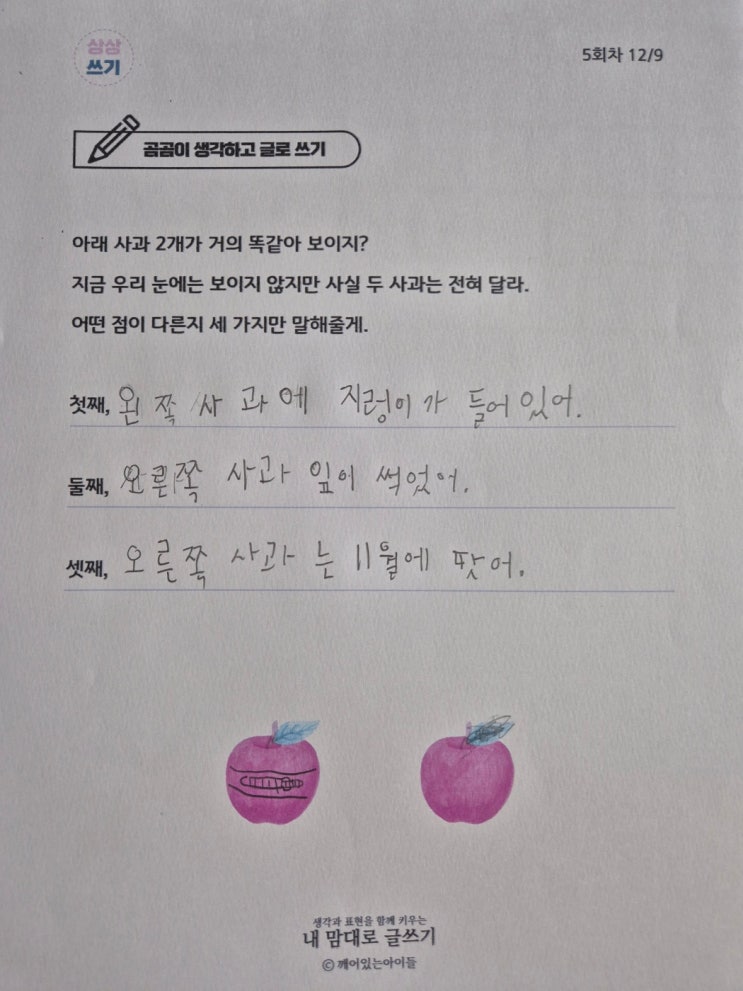 상상
쓰기
5회차 12/9
곰곰이 생각하고 글로 쓰기
아래 사과 2개가 거의 똑같아 보이지?
지금 우리 눈에는 보이지 않지만 사실 두 사과는 전혀 달라.
어떤 점이 다른지 세 가지만 말해줄게.
첫째, 왼쪽 사과에 지렁이가 들어있어.
둘째, 오른쪽 사과 잎이 썩었어.
셋째, 오른쪽 사과는 11월에 팟어.
생각과 표현을 함께 키우는
내 맘대로 글쓰기
ⓒ 깨어있는아이들